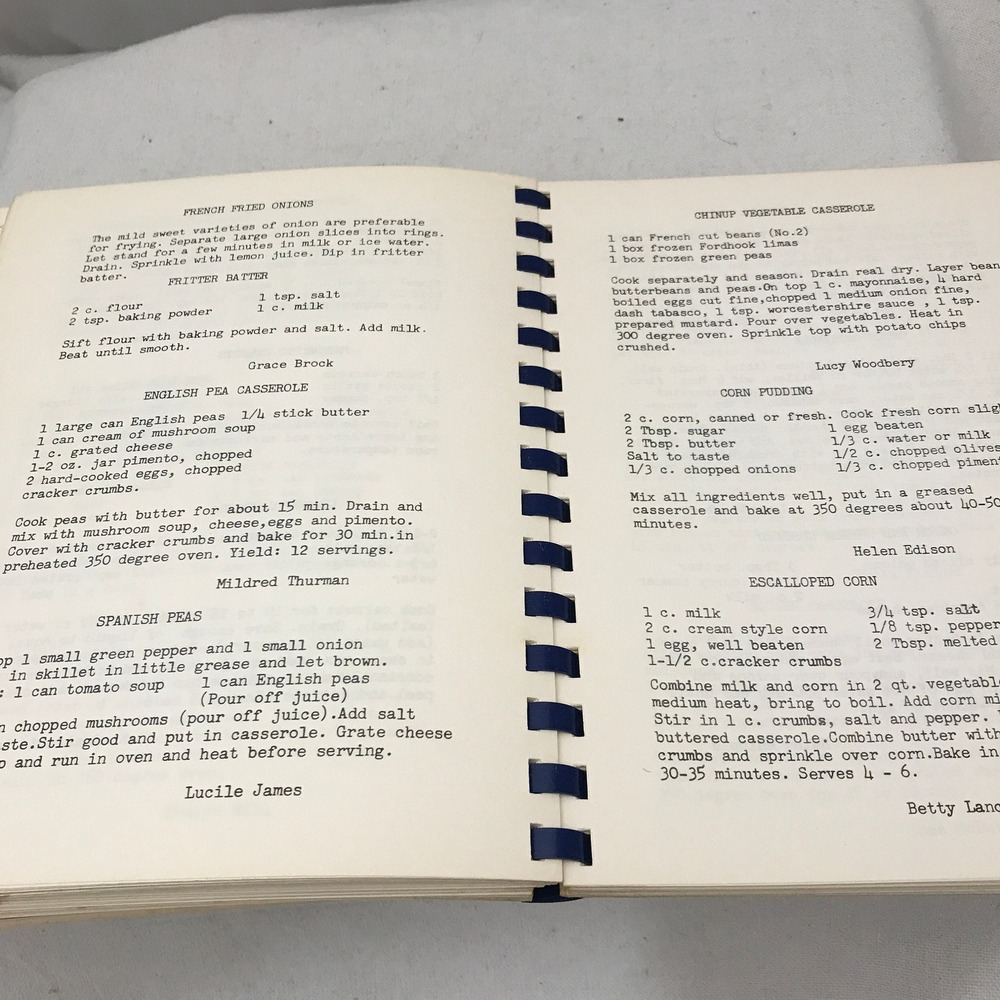 FRENCH FRIED ONIONS
The mild sweet varieties of onion are preferable
for frying. Separate large onion slices into rings.
Let stand for a few minutes in milk or ice water.
Drain. Sprinkle with lemon juice. Dip in fritter
batter.
FRITTER BATTER
2 c. flour 1 tsp. salt
2 tsp. baking powder 1 c. milk
Sift flour with baking powder and salt. Add milk.
Beat until smooth.
Grace Brock
ENGLISH PEA CASSEROLE
1 large can English peas 1/4 stick butter
1 can cream of mushroom soup
1 c. grated cheese
1-2 oz. jar pimento, chopped
2 hard-cooked eggs, chopped
cracker crumbs.
Cook peas with butter for about 15 min. Drain and
mix with mushroom soup, cheese,eggs and pimento.
Cover with cracker crumbs and bake for 30 min.in
preheated 350 degree oven. Yield: 12 servings.
Mildred Thurman
SPANISH PEAS
op 1 small green pepper and 1 small onion
in skillet in little grease and let brown.
: 1 can tomato soup 1 can English peas
(Pour off juice)
n chopped mushrooms (pour off juice).Add salt
aste.Stir good and put in casserole. Grate cheese
p and run in oven and heat before serving.
Lucile James
CHINUP VEGETABLE CASSEROLE
1 can French cut beans (No.2)
1 box frozen Fordhook limas
1 box frozen green peas
Cook separately and season. Drain real dry. Layer bean
butterbeans and peas.On top 1 c. mayonnaise, 4 hard
boiled eggs cut fine,chopped 1 medium onion fine,
dash tabasco, 1 tsp. worcestershire sauce , 1 tsp.
prepared mustard. Pour over vegetables. Heat in
300 degree oven. Sprinkle top with potato chips
crushed.
Lucy Woodbery
CORN PUDDING
2 c. corn, canned or fresh. Cook fresh corn slig
2 Tbsp. sugar 1 egg beaten
2 Tbsp. butter 1/3 c. water or milk
Salt to taste 1/2 c. chopped olives
1/3 c. chopped onions 1/3 c. chopped pimen
Mix all ingredients well, put in a greased
casserole and bake at 350 degrees about 40-50
minutes.
Helen Edison
ESCALLOPED CORN
1 c. milk 3/4 tsp. salt
2 c. cream style corn 1/8 tsp. pepper
1 egg, well beaten 2 Tbsp. melted
1-1/2 c.cracker crumbs
Combine milk and corn in 2 qt. vegetabl
medium heat, bring to boil. Add corn mi
Stir in 1 c. crumbs, salt and pepper.
buttered casserole.Combine butter with
crumbs and sprinkle over corn.Bake in
30-35 minutes. Serves 4 - 6.
Betty Lanc